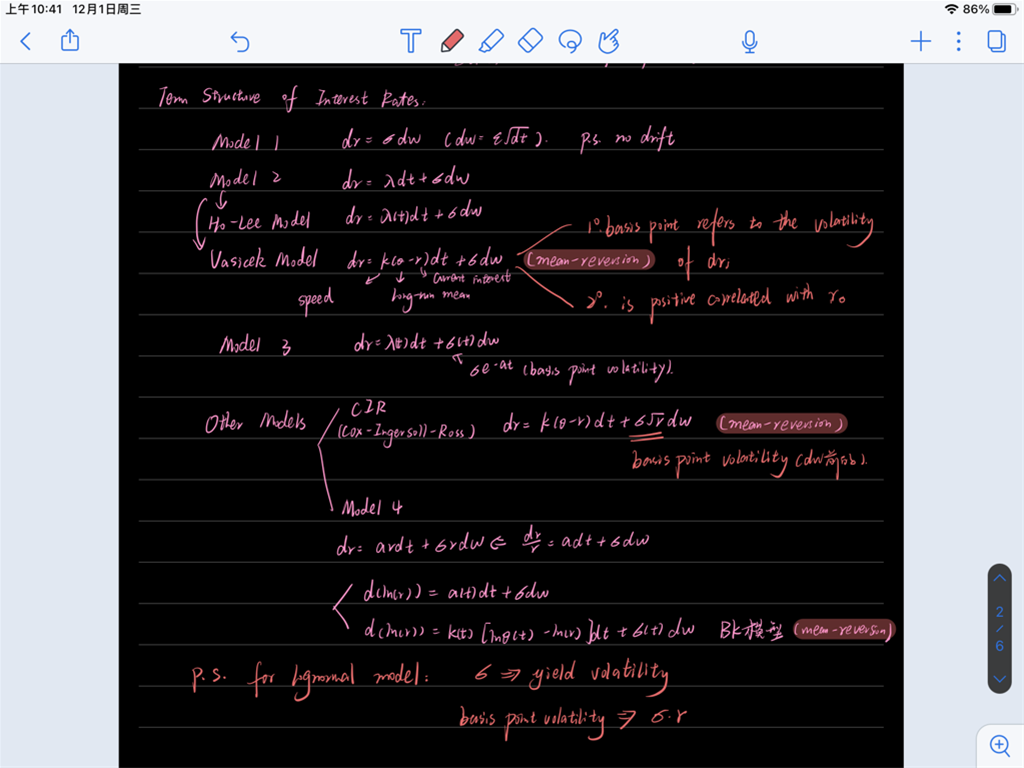 上午10:41 12月1日周三
86%
Term Structure of Interest Rates:
Model 1 dr = σdw (dw = ε√dt). p.s. no drift
Model 2 dr = λdt + σdw
Ho-Lee Model dr = λ(t)dt + σdw
1°. basis point refers to the volatility
Vasicek Model dr = k(θ-r)dt + σdw (mean-reversion) of dr;
speed long-run mean current interest
2°. is positive correlated with r.
Model 3 dr = λ(t)dt + σ(t)dw
σe-at (basis point volatility).
Other Models CIR
(Cox-Ingersoll-Ross) dr = k(θ-r)dt + σ√r dw (mean-reversion)
basis point volatility (dw前的).
Model 4
dr = ardt + σrdw ⇐ dr/r = adt + σdw
d(ln(r)) = a(t)dt + σdw
d(ln(r)) = k(t) [lnθ(t) - ln(r)]dt + σ(t)dw BK模型 (mean-reversion)
p.s. for lognormal model: σ ⇒ yield volatility
basis point volatility ⇒ σ·r
2
/
6